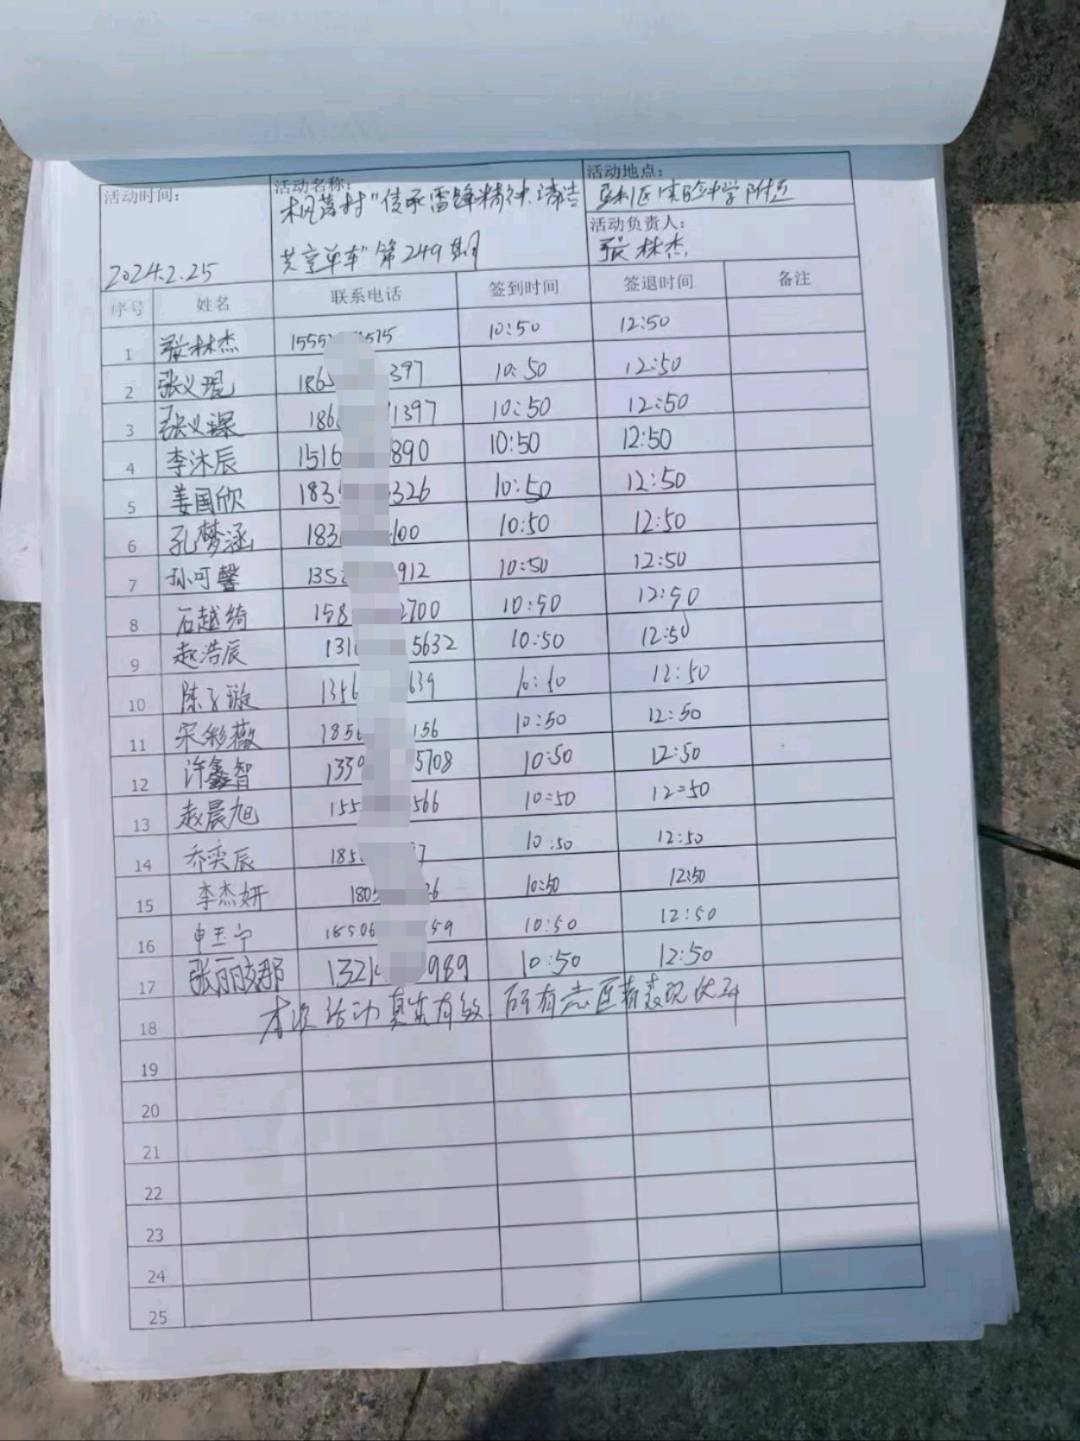 活动时间：
2024.2.25
活动名称：
"传承雷锋精神、清洁
共享单车"第249期
活动地点：
实验中学附近
活动负责人：
张林杰
序号 姓名 联系电话 签到时间 签退时间 备注
1 张林杰 1555 575 10:50 12:50
2 张义琨 186 397 10:50 12:50
3 张义 186 1397 10:50 12:50
4 李沐辰 1516 890 10:50 12:50
5 姜国欣 183 326 10:50 12:50
6 孔梦涵 183 100 10:50 12:50
7 孙可馨 135 912 10:50 12:50
8 石越绮 158 2700 10:50 12:50
9 赵浩辰 131 5632 10:50 12:50
10 陈子漩 1356 639 12:50
11 宋彩薇 185 156 10:50 12:50
12 许鑫智 133 5708 10:50 12:50
13 赵晨旭 155 566 10:50 12:50
14 乔奕辰 185 7 10:50 12:50
15 李杰妍 1805 26 10:50 12:50
16 申玉宁 18506 59 10:50 12:50
17 张丽 132 989 10:50 12:50
18 本次活动真实有效，所有志愿者表现优异
19
20
21
22
23
24
25